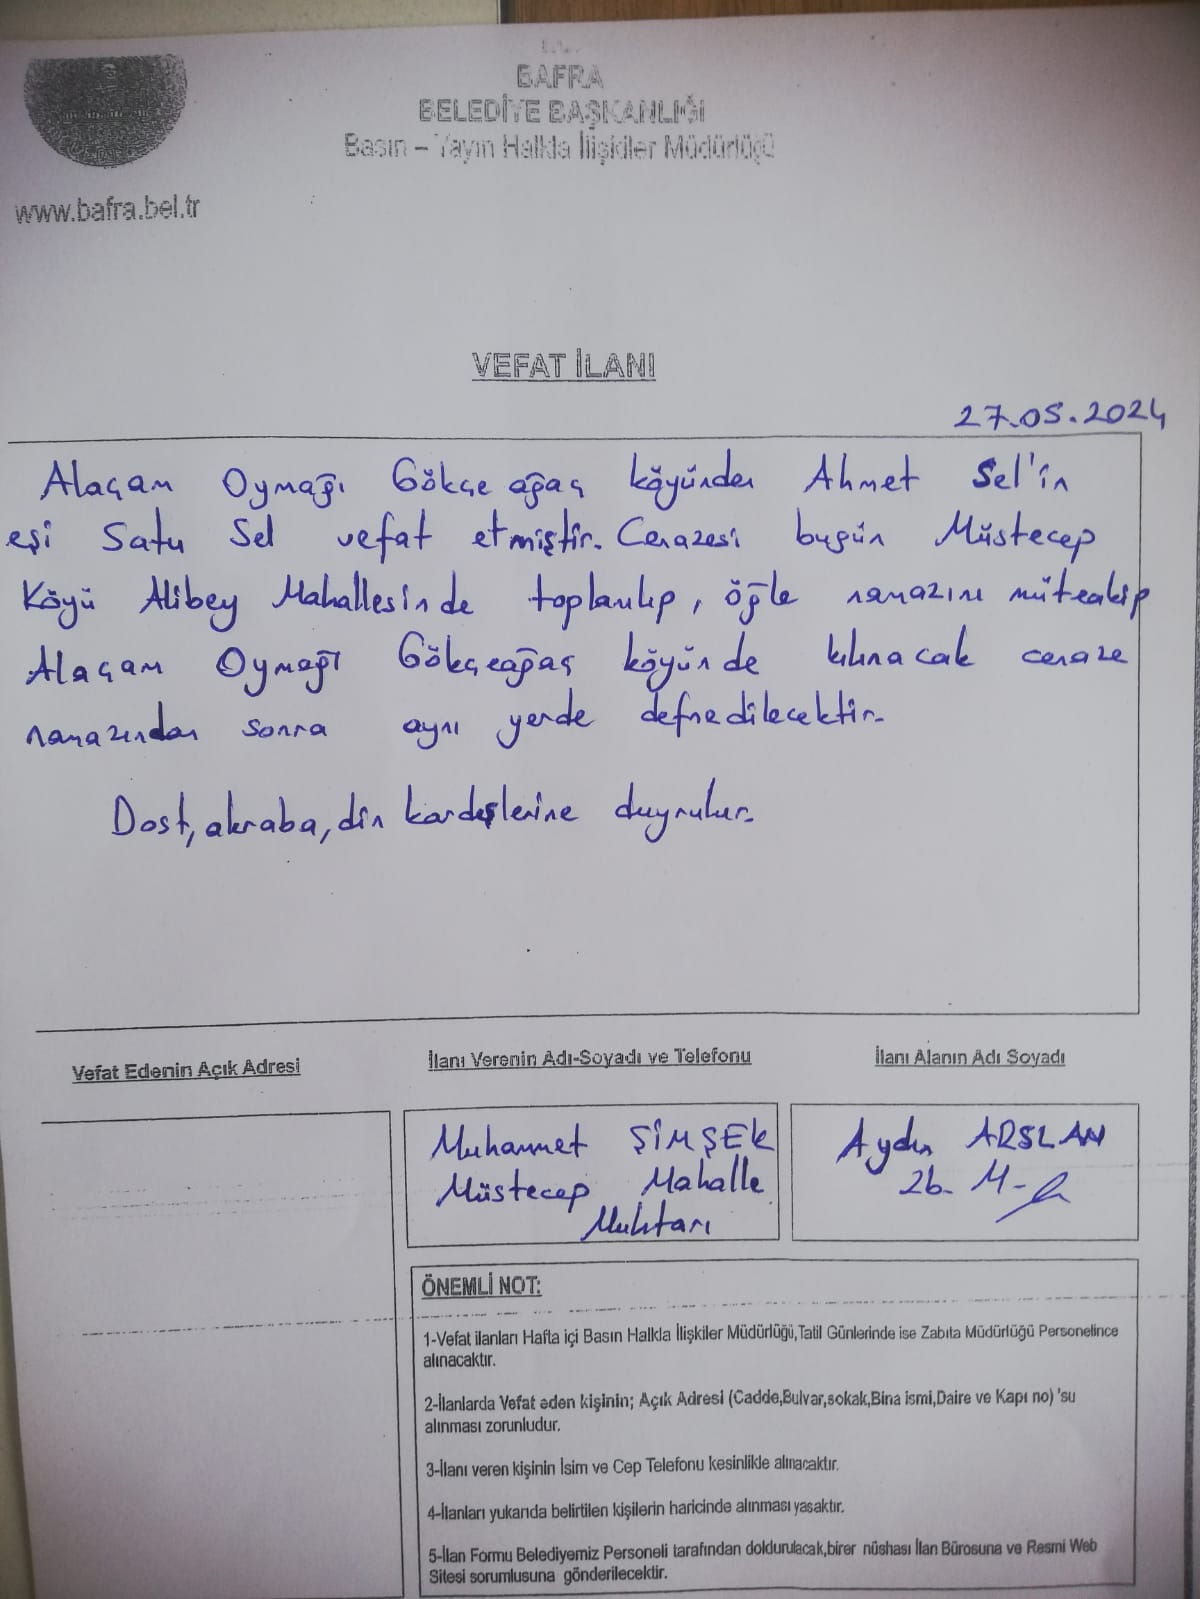 T.C.
BAFRA
BELEDİYE BAŞKANLIĞI
Basın – Yayın Halkla İlişkiler Müdürlüğü
www.bafra.bel.tr
VEFAT İLANI
27.05.2024
Alaçam Oymağı Gökçe ağaç köyünden Ahmet Sel'in
eşi Satu Sel vefat etmiştir. Cenazesi bugün Müstecep
Köyü Alibey Mahallesinde toplanılıp, öğle namazını müteakip
Alaçam Oymağı Gökçeağaç köyünde kılınacak cenaze
namazından sonra aynı yerde defnedilecektir.
Dost, akraba, din kardeşlerine duyrulur.
Vefat Edenin Açık Adresi
İlanı Verenin Adı-Soyadı ve Telefonu
İlanı Alanın Adı Soyadı
Muhammet ŞİMŞEK
Müstecep Mahalle
Muhtarı
Aydın ARSLAN
Zb. M-
ÖNEMLİ NOT:
1-Vefat ilanları Hafta içi Basın Halkla İlişkiler Müdürlüğü,Tatil Günlerinde ise Zabıta Müdürlüğü Personelince
alınacaktır.
2-İlanlarda Vefat eden kişinin; Açık Adresi (Cadde,Bulvar,sokak,Bina ismi,Daire ve Kapı no) 'su
alınması zorunludur.
3-İlanı veren kişinin İsim ve Cep Telefonu kesinlikle alınacaktır.
4-İlanları yukarıda belirtilen kişilerin haricinde alınması yasaktır.
5-İlan Formu Belediyemiz Personeli tarafından doldurulacak,birer nüshası İlan Bürosuna ve Resmi Web
Sitesi sorumlusuna gönderilecektir.